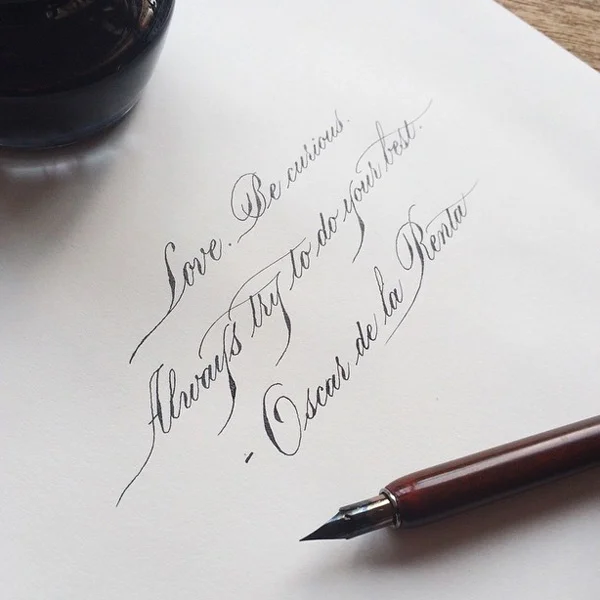 Love. Be curious.
Always try to do your best.
- Oscar de la Renta